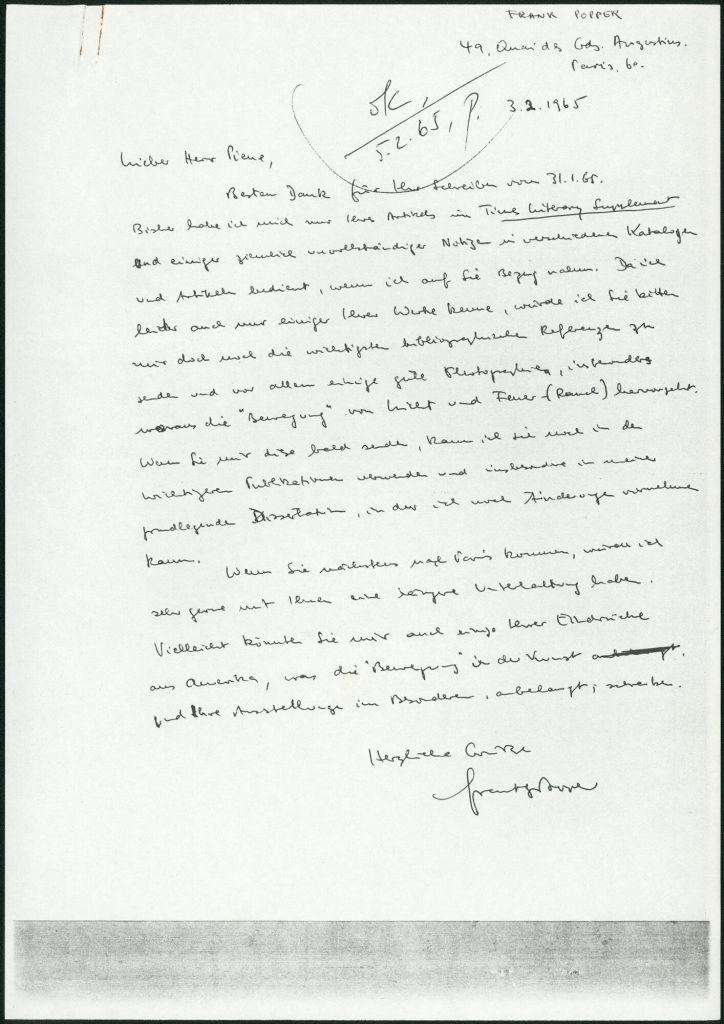 FRANK POPPER
49, Quai des Gds. Augustins.
Paris, 6e.
ok,
5.2.65, P.
3.2.1965
Lieber Herr Piene,
Besten Dank für Ihr Schreiben vom 31.1.65.
Bisher habe ich mich nur Ihres Artikels im Times Literary Supplement
und einiger ziemlich unvollständiger Notizen in verschiedenen Katalogen
und Artikeln bedient, wenn ich auf Sie Bezug nahm. Da ich
leider auch nur einiger Ihrer Werke kenne, würde ich Sie bitten
mir doch noch die wichtigsten bibliographischen Referenzen zu
senden und vor allem einige gute Photographien, insbesonders
woraus die "Bewegung" von Licht und Feuer-(Rauch) hervorgeht.
Wenn Sie mir diese bald senden, kann ich sie noch in den
wichtigeren Publikationen verwenden und insbesondere in meiner
grundlegenden Dissertation, in der ich noch Änderungen vornehmen
kann.
Wenn Sie nächstens nach Paris kommen, würde ich
sehr gerne mit Ihnen eine längere Unterhaltung haben.
Vielleicht könnten Sie mir auch einige Ihrer Eindrücke
aus Amerika, was die "Bewegung" in der Kunst
und Ihre Ausstellung im Besonderen, anbelangt, schreiben.
Herzliche Grüsse
Frank Popper